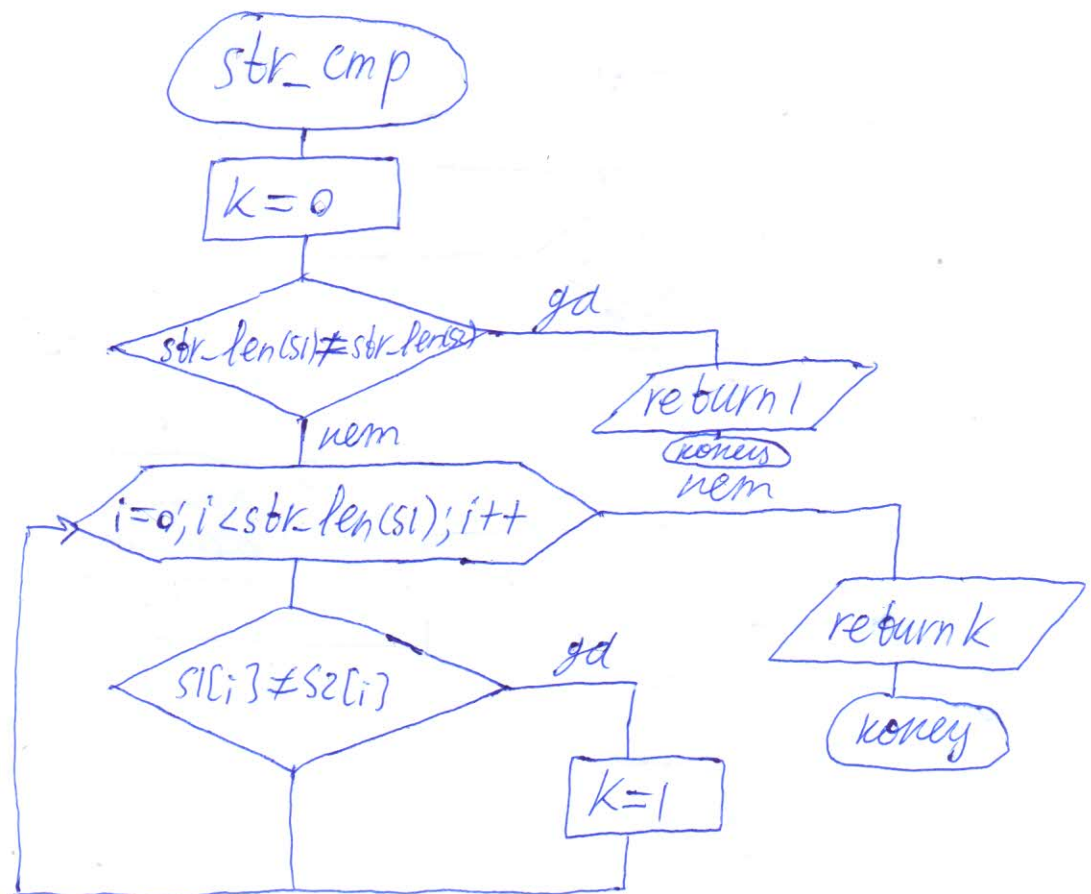 str_cmp
k=0
str_len(s1)≠str_len(s2)
да
return 1
конец
нет
нет
i=0; i<str_len(s1); i++
return k
s1[i]≠s2[i]
да
конец
k=1